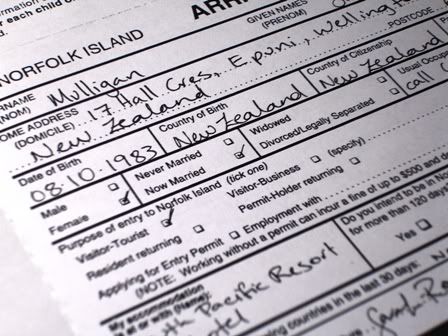 r each child
ARRI
GIVEN NAMES
(PRENOM)
NORFOLK ISLAND
POSTCODE
Milligan
(NOM)
HOME ADDRESS 17 Hall Cres, Epuni, Wellington
(DOMICILE)
New Zealand
Country of Citizenship
New Zealand
Usual Occu
call
Date of Birth
08.10.1983
Country of Birth
New Zealand
Male
Female
Never Married
Now Married
Widowed
Divorced/Legally Separated
Purpose of entry to Norfolk Island (tick one)
Visitor-Tourist
Visitor-Business
(specify)
Resident returning
Permit-Holder returning
Applying for Entry Permit
Employment with
(NOTE: Working without a permit can incur a fine of up to $5000 and
Do you intend to be in No
for more than 120 day
Yes
My accommodation
at or with (Name)
th Pacific Resort
Hotel
ing countries in the last 30 days: